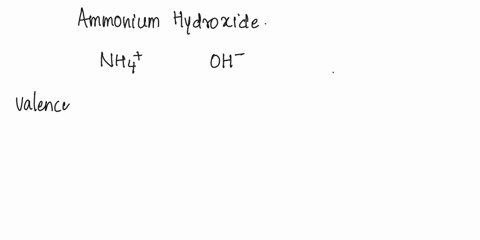 Ammonium Hydroxide.
NH₄⁺ OH⁻
Valence